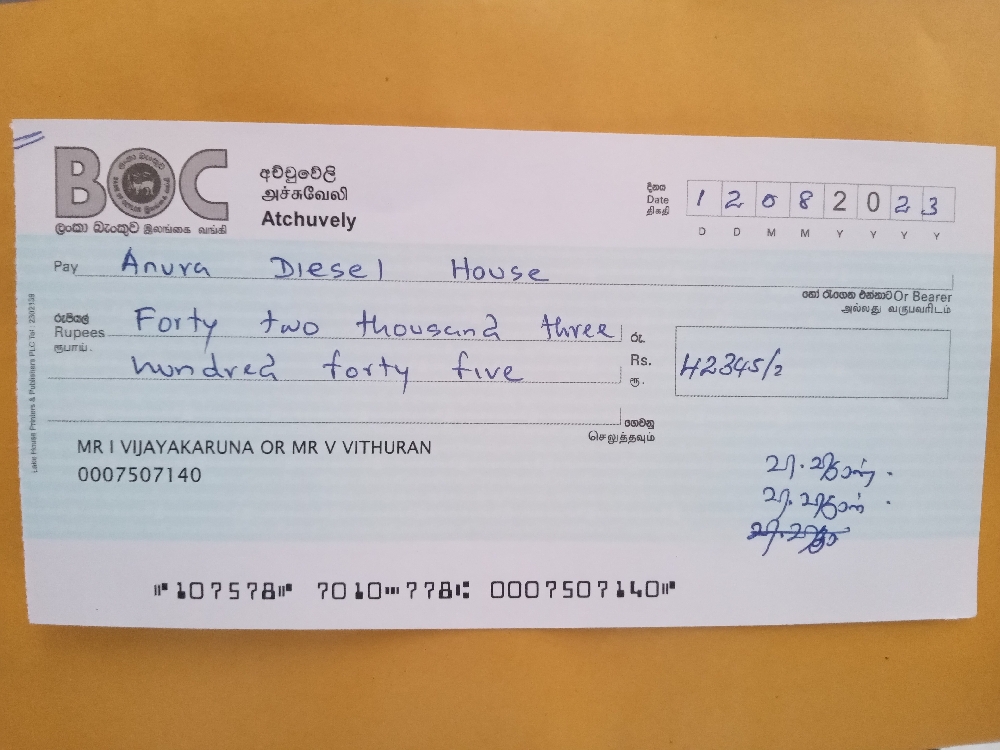 BOC
ලංකා බැංකුව இலங்கை வங்கி
අච්චුවේලි
அச்சுவேலி
Atchuvely
දිනය
Date
திகதி
1 2 0 8 2 0 2 3
D D M M Y Y Y Y
Pay Anura Diesel House
හෝ රැගෙන එන්නාට Or Bearer
அல்லது வருபவரிடம்
රුපියල්
Rupees Forty two thousand three
ரூபாய்
hundred forty five
රු.
Rs. 42345/=
ரூ.
ගෙවනු
செலுத்தவும்
MR I VIJAYAKARUNA OR MR V VITHURAN
0007507140
Lake House Printers & Publishers PLC Tel : 2302138
⑈107578⑈ 7010⑉778⑆ 0007507140⑈